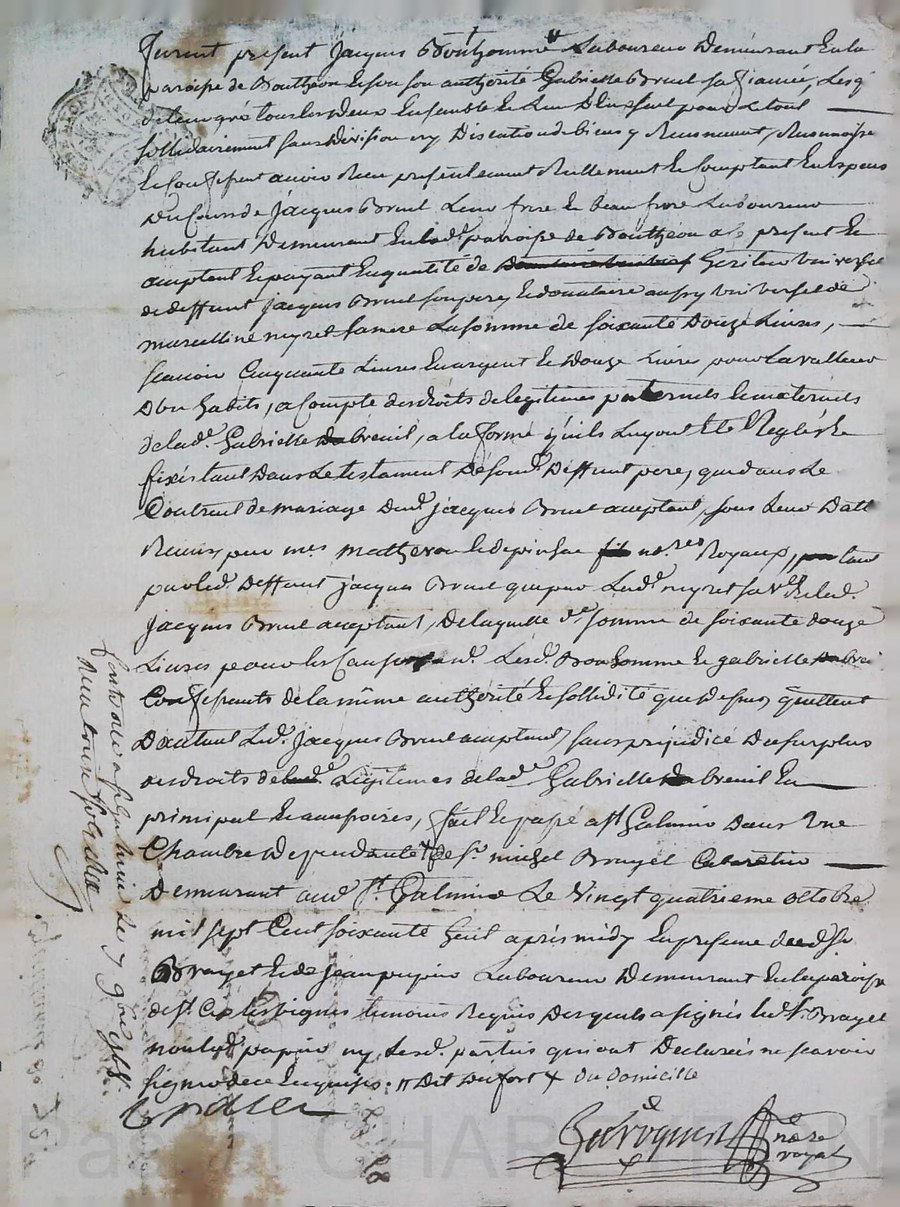 furent présent Jacques Bonhomme Laboureur Demeurant en la
paroisse de Bouthéon Et sous son authorité Gabrielle Bruel sa fiancée, Lesq.
de leur gré tous Les deux Ensemble Et L'un D'eux seul pour Le tout
sollidairement sans Division ny Discution de biens y Renoncant,
Le Confessent avoir Reçu présentement Réellement Et Comptant En Espèces
Du Cours de Jacques Bruel Leur frère Et beau frère Laboureur
habitant Demeurant En lad.e parroisse de Bouthéon a ce présent Et
acceptant Et payant En qualité de héritier universel
de deffunt Jacques Bruel son père, Et donataire aussy universel de
marcelline neyret sa mère La somme de soixante Douze Livres,
scavoir Cinquante Livres En argent Et Douze Livres pour La valleur
D'un habits, a Compte des droits de legitimes paternels Et maternels
de lad.e Gabrielle breuil, a la forme qu'ils Luy ont Eté Reglés Et
fixés tant Dans Le testament De son d. Deffunt père, que dans Le
Contract de mariage Dud. jacques Bruel acceptant, sous Leur Datte
Reçus par mes matheron Et depinhac no.res Royaux, tant
par led. Deffunt jacques Bruel que par Lad.e neyret
Jacques Bruel acceptant, De laquelle d.e somme de soixante douze
Livres pour les Causes Lesd. Bonhomme Et gabrielle
Confessants de la même authorité Et sollidité que Dessus, quittent
D'autant Led. Jacques Bruel acceptant, sans préjudice Du surplus
des droits de Légitimes de lad.e Gabrielle breuil En
principal Et accessoires, fait Et passé a St Galmier Dans Une
Chambre Dependante + de Sr. michel Brayet Cabaretier
Demeurant aud. St. Galmier Le Vingt quatrieme octobre
mil sept Cent soixante huit après midy En présence dud. Sr
Brayet Et de Jean papier Laboureur Demeurant En la paroisse
de St. Les signes temoins Requis Desquels a signés led. Sr. Brayet
non led. papier ny Lesd. parties qui ont Declarés ne scavoir
signer de ce Enquis. // Dit Dufort + du domicille
no.re
royal
Controllé a St galmier Le 7 9bre 1768.
Reçu
Pascal CHAREYRON